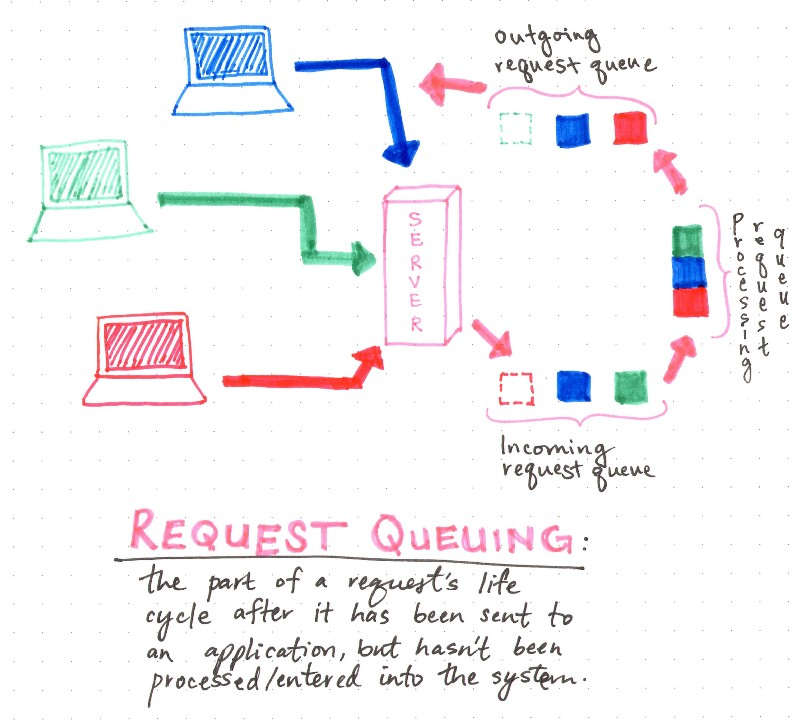 Outgoing
request queue
SERVER
Processing
request
queue
Incoming
request queue
REQUEST QUEUING:
the part of a request's life
cycle after it has been sent to
an application, but hasn't been
processed/entered into the system.